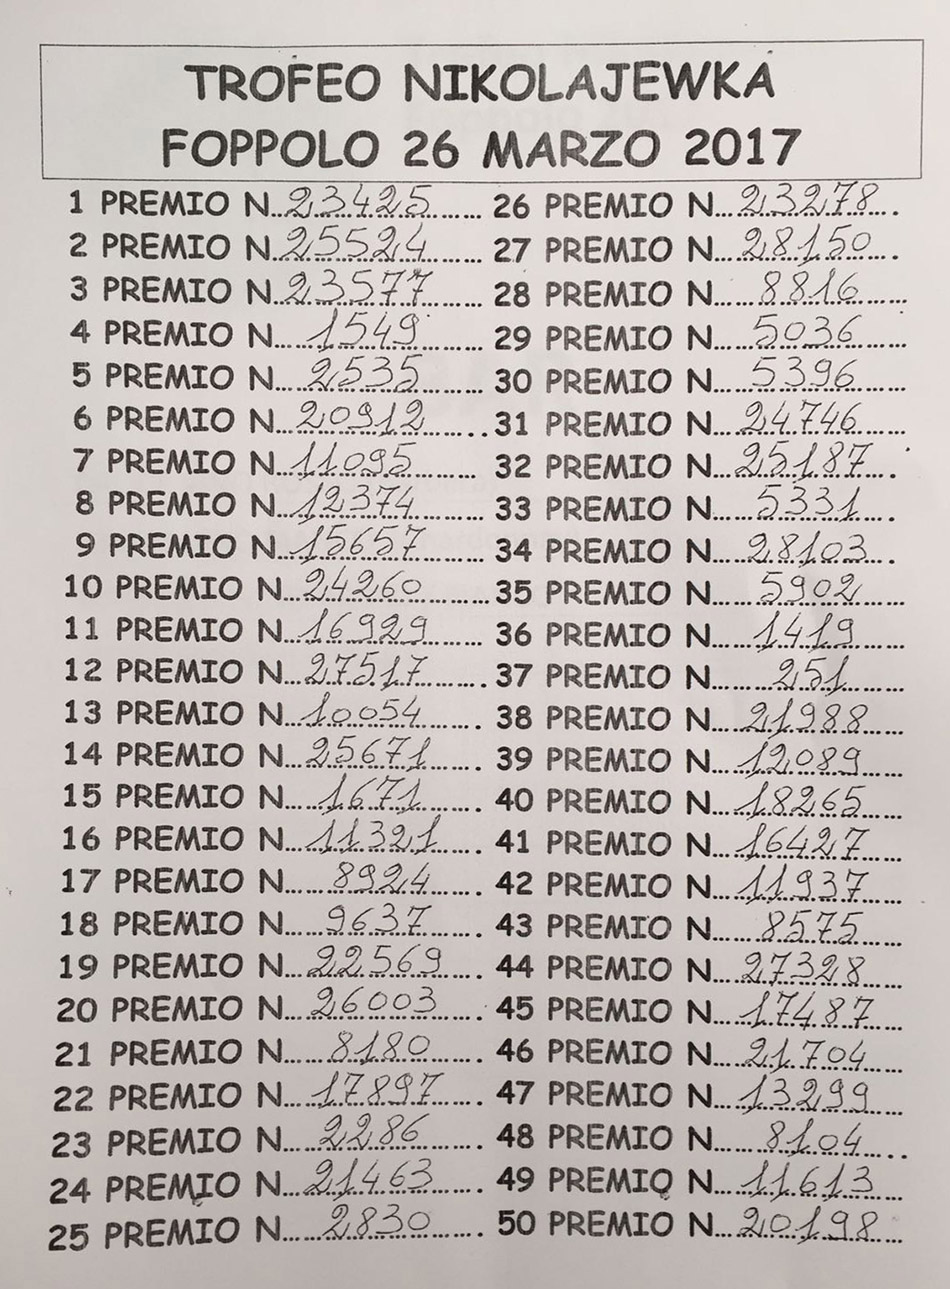 TROFEO NIKOLAJEWKA
FOPPOLO 26 MARZO 2017
1 PREMIO N...23425......
2 PREMIO N...25524......
3 PREMIO N...23577......
4 PREMIO N....1549......
5 PREMIO N....2535......
6 PREMIO N...20912......
7 PREMIO N...11095......
8 PREMIO N...12374......
9 PREMIO N...15657......
10 PREMIO N...24260......
11 PREMIO N...16929......
12 PREMIO N...27517......
13 PREMIO N...10054......
14 PREMIO N...25671......
15 PREMIO N....1671......
16 PREMIO N...11321......
17 PREMIO N....8924......
18 PREMIO N....9637......
19 PREMIO N...22569......
20 PREMIO N...26003......
21 PREMIO N....8180......
22 PREMIO N...17897......
23 PREMIO N....2286......
24 PREMIO N...21463......
25 PREMIO N....2830......
26 PREMIO N...23278....
27 PREMIO N...28150....
28 PREMIO N....8816......
29 PREMIO N....5036......
30 PREMIO N....5396......
31 PREMIO N...24746......
32 PREMIO N...25187....
33 PREMIO N....5331....
34 PREMIO N...28103....
35 PREMIO N....5902......
36 PREMIO N....1419......
37 PREMIO N.....251......
38 PREMIO N...21988......
39 PREMIO N...12089......
40 PREMIO N...18265......
41 PREMIO N...16427......
42 PREMIO N...11937......
43 PREMIO N....8575......
44 PREMIO N...27328......
45 PREMIO N...17487......
46 PREMIO N...21704......
47 PREMIO N...13299......
48 PREMIO N....8104......
49 PREMIO N...11613......
50 PREMIO N...20198......